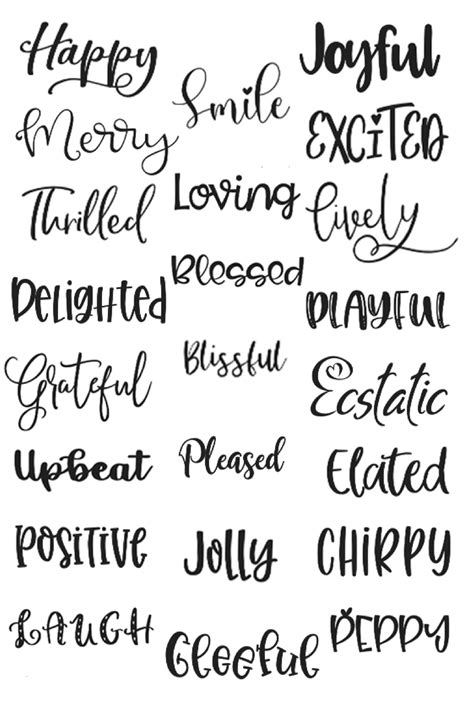 Happy
Smile
Joyful
Merry
EXCITED
Thrilled
Loving
lively
Delighted
Blessed
PLAYFUL
Grateful
Blissful
Ecstatic
Upbeat
Pleased
Elated
POSITIVE
Jolly
CHIRPY
LAUGH
Gleeful
PEPPY